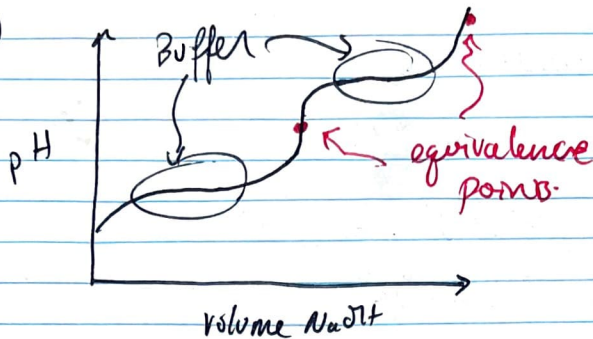 Buffer
pH
equivalence
points.
volume NaOH